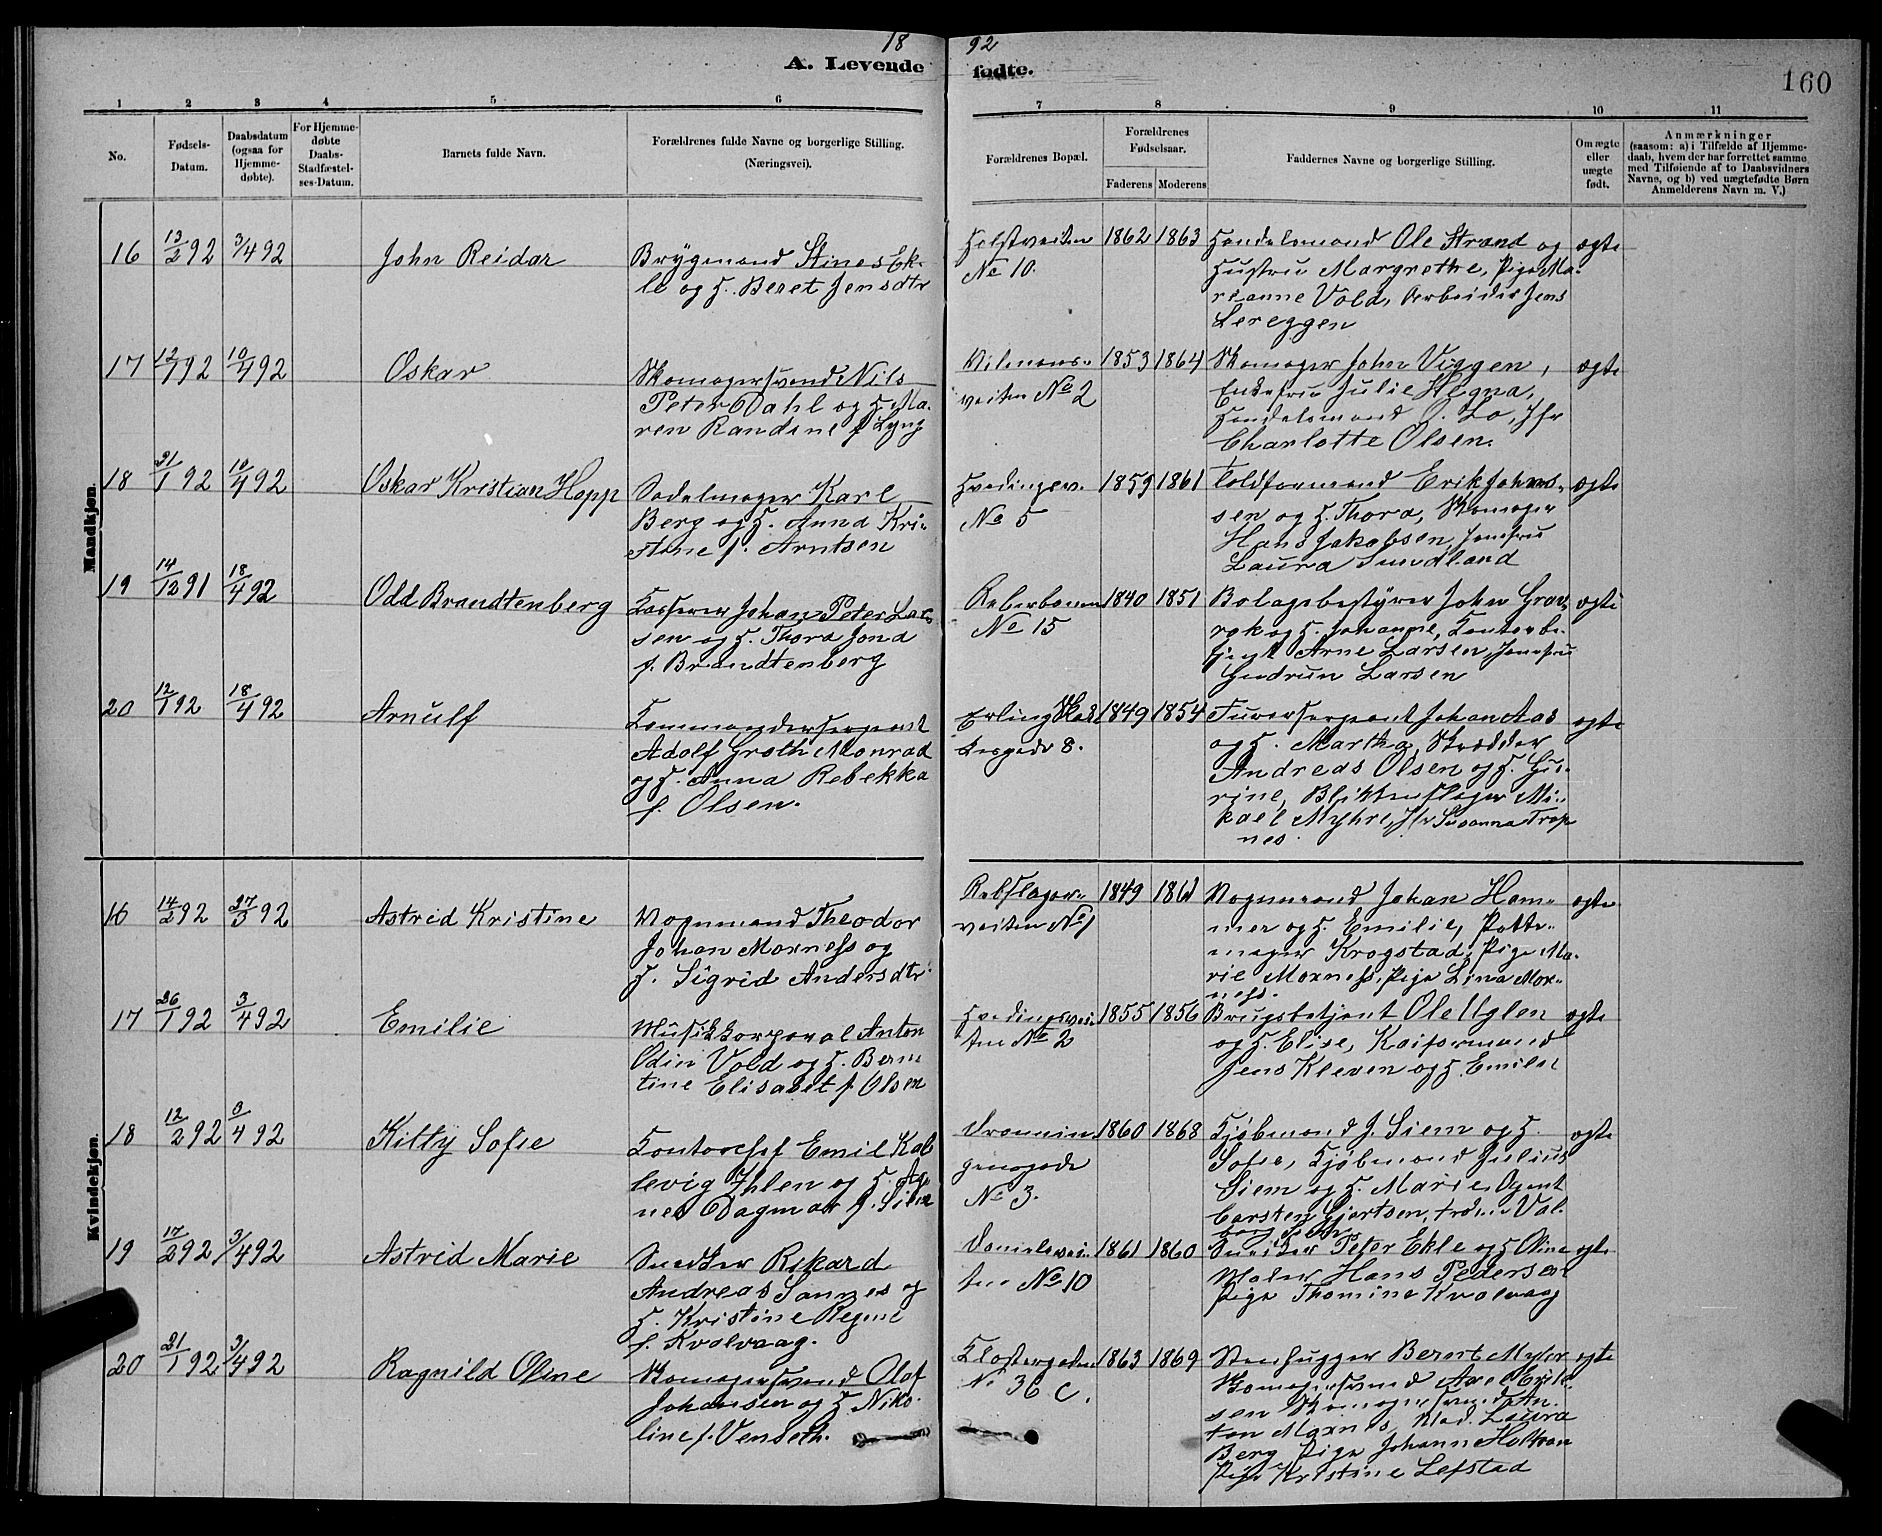 18 92
A. Levende fødte.
160
1 2 3 4 5 6 7 8 9 10 11
No.
Fødsels-
Datum.
Daabsdatum
(ogsaa for
Hjemme-
døbte).
For Hjemme-
døbte
Daabs-
Stadfæstel-
ses-Datum.
Barnets fulde Navn.
Forældrenes fulde Navne og borgerlige Stilling.
(Næringsvei).
Forældrenes Bopæl.
Forældrenes
Fødselsaar.
Faderens Moderens
Faddernes Navne og borgerlige Stilling.
Om ægte
eller
uægte
født.
Anmærkninger
(saasom: a) i Tilfælde af Hjemme-
daab, hvem der har forrettet samme
med Tilføiende af to Daabsvidners
Navne, og b) ved uægtefødte Børn
Anmelderens Navn m. V.)
Mandkjøn.
16 13/2 92 3/4 92 John Reidar
Brygmand Stines Ek-
le og H. Beret Jensdtr
Holstveiten
No 10.
1862 1863
Handelsmand Ole Strand og
Hustru Margrethe, Pige Ma-
rianne Vold, Arbeider Jens
Lereggen
ægte
17 12/1 92 10/4 92 Oskar
Skomagersvend Nils
Peter Dahl og H. Ma-
ren Randine f. Lyng
veiten No 2
1853 1864
Skomager John Viggen,
Enkefru Julie Hegna,
Handelsmand O. Lo, Jfr
Charlotte Olsen.
ægte
18 31/1 92 10/4 92 Oskar Kristian Hopp
Sadelmager Karl
Berg og H. Anna Kri-
stine f. Arntsen
Hvedingsv.
No 5
1859 1861
Toldformand Erik Johns-
sen og H. Thora, Skomager
Hans Jakobsen, Jomfru
Laura Sundland
ægte
19 14/12 91 18/4 92 Odd Brandtenberg
Kasserer Johan Peter Lar-
sen og H. Thora Jond
f. Brandtenberg
No 15
1840 1851
Bolagsbestyrer John Grav-
rok og H. Johanne, Kontorbe-
tjent Arne Larsen, Jomfru
Gudrun Larsen
ægte
20 12/1 92 18/4 92 Arnulf
Kommandersergeant
Adolf Groth Monrad
og H. Anna Rebekka
f. Olsen.
Erling Skak-
kesgade 8.
1849 1854
Furersergeant Johan Aas
og H. Martha, Skrædder
Andreas Olsen og H. Gu-
rine, Blikkenslager Mi-
kael Myhre, Jfr Susanna Trap
nes.
ægte
Kvindekjøn.
16 14/2 92 27/3 92 Astrid Kristine
Vognmand Theodor
Johan Moxness og
H. Sigrid Andersdtr
Rebslager-
veiten No 1
1849
Vognmand Johan Ham-
mer og H. Emilie, Potte-
mager Krogstad, Pige Ma-
rie Moxness, Pige Lina Mox-
ness.
ægte
17 26/1 92 3/4 92 Emilie
Musikkorporal Anton
Odin Vold og H. Bern
tine Elisabet f. Olsen
Hvedingsvei-
ten No 2
1855 1856
Brugsbetjent Ole Uglen
og H. Elise, Kaiformand
Jens Kleven og H. Emilie
ægte
18 12/2 92 3/4 92 Kitty Sofie
Kontorchef Emil Kol
levig Ihlen og H. Ag-
nes Dagmar f. Siem
Dronnin
gensgade
No 3.
1860 1868
Kjøbmand J. Siem og H.
Sofie, Kjøbmand Julius
Siem og H. Marie, Agent
Carsten Gjertsen, Frøken Val-
ægte
19 17/2 92 3/4 92 Astrid Marie
Snedker Rikard
Andreas Sannes og
H. Kristine Regine
f. Kvalvaag.
Danielsvei-
ten No 10
1861 1860
Snedker Peter Ekle og H. Oline
Maler Hans Pedersen
Pige Thomine Kvalvaag
ægte
20 21/1 92 3/4 92 Ragnild Oline
Skomagersvend Olaf
Johansen og H. Niko-
line f. Venseth.
Klostergaden
No 36 C.
1863 1869
Stenhugger Bernt Myhr
Skomagersvend Axel Erik-
sen Skomagersvend An-
ton Moxnes, Mad. Laura
Berg Pige Johanne Holtvan
Pige Kristine Lefstad
ægte